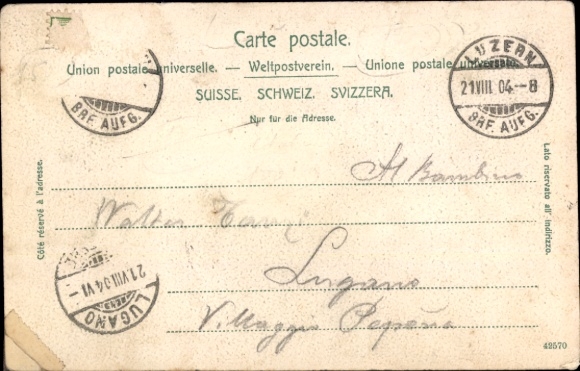 Carte postale.
Union postale universelle. — Weltpostverein. — Unione postale universale.
SUISSE. SCHWEIZ. SVIZZERA.
Nur für die Adresse.
LUZERN
21.VIII.04.-8
BRF. AUFG.
BRF. AUFG.
Côté réservé à l'adresse.
Lato riservato all' indirizzo.
Al Bambino
Walter
Lugano
Villaggio
21.VIII.04.VI-
LUGANO
42570